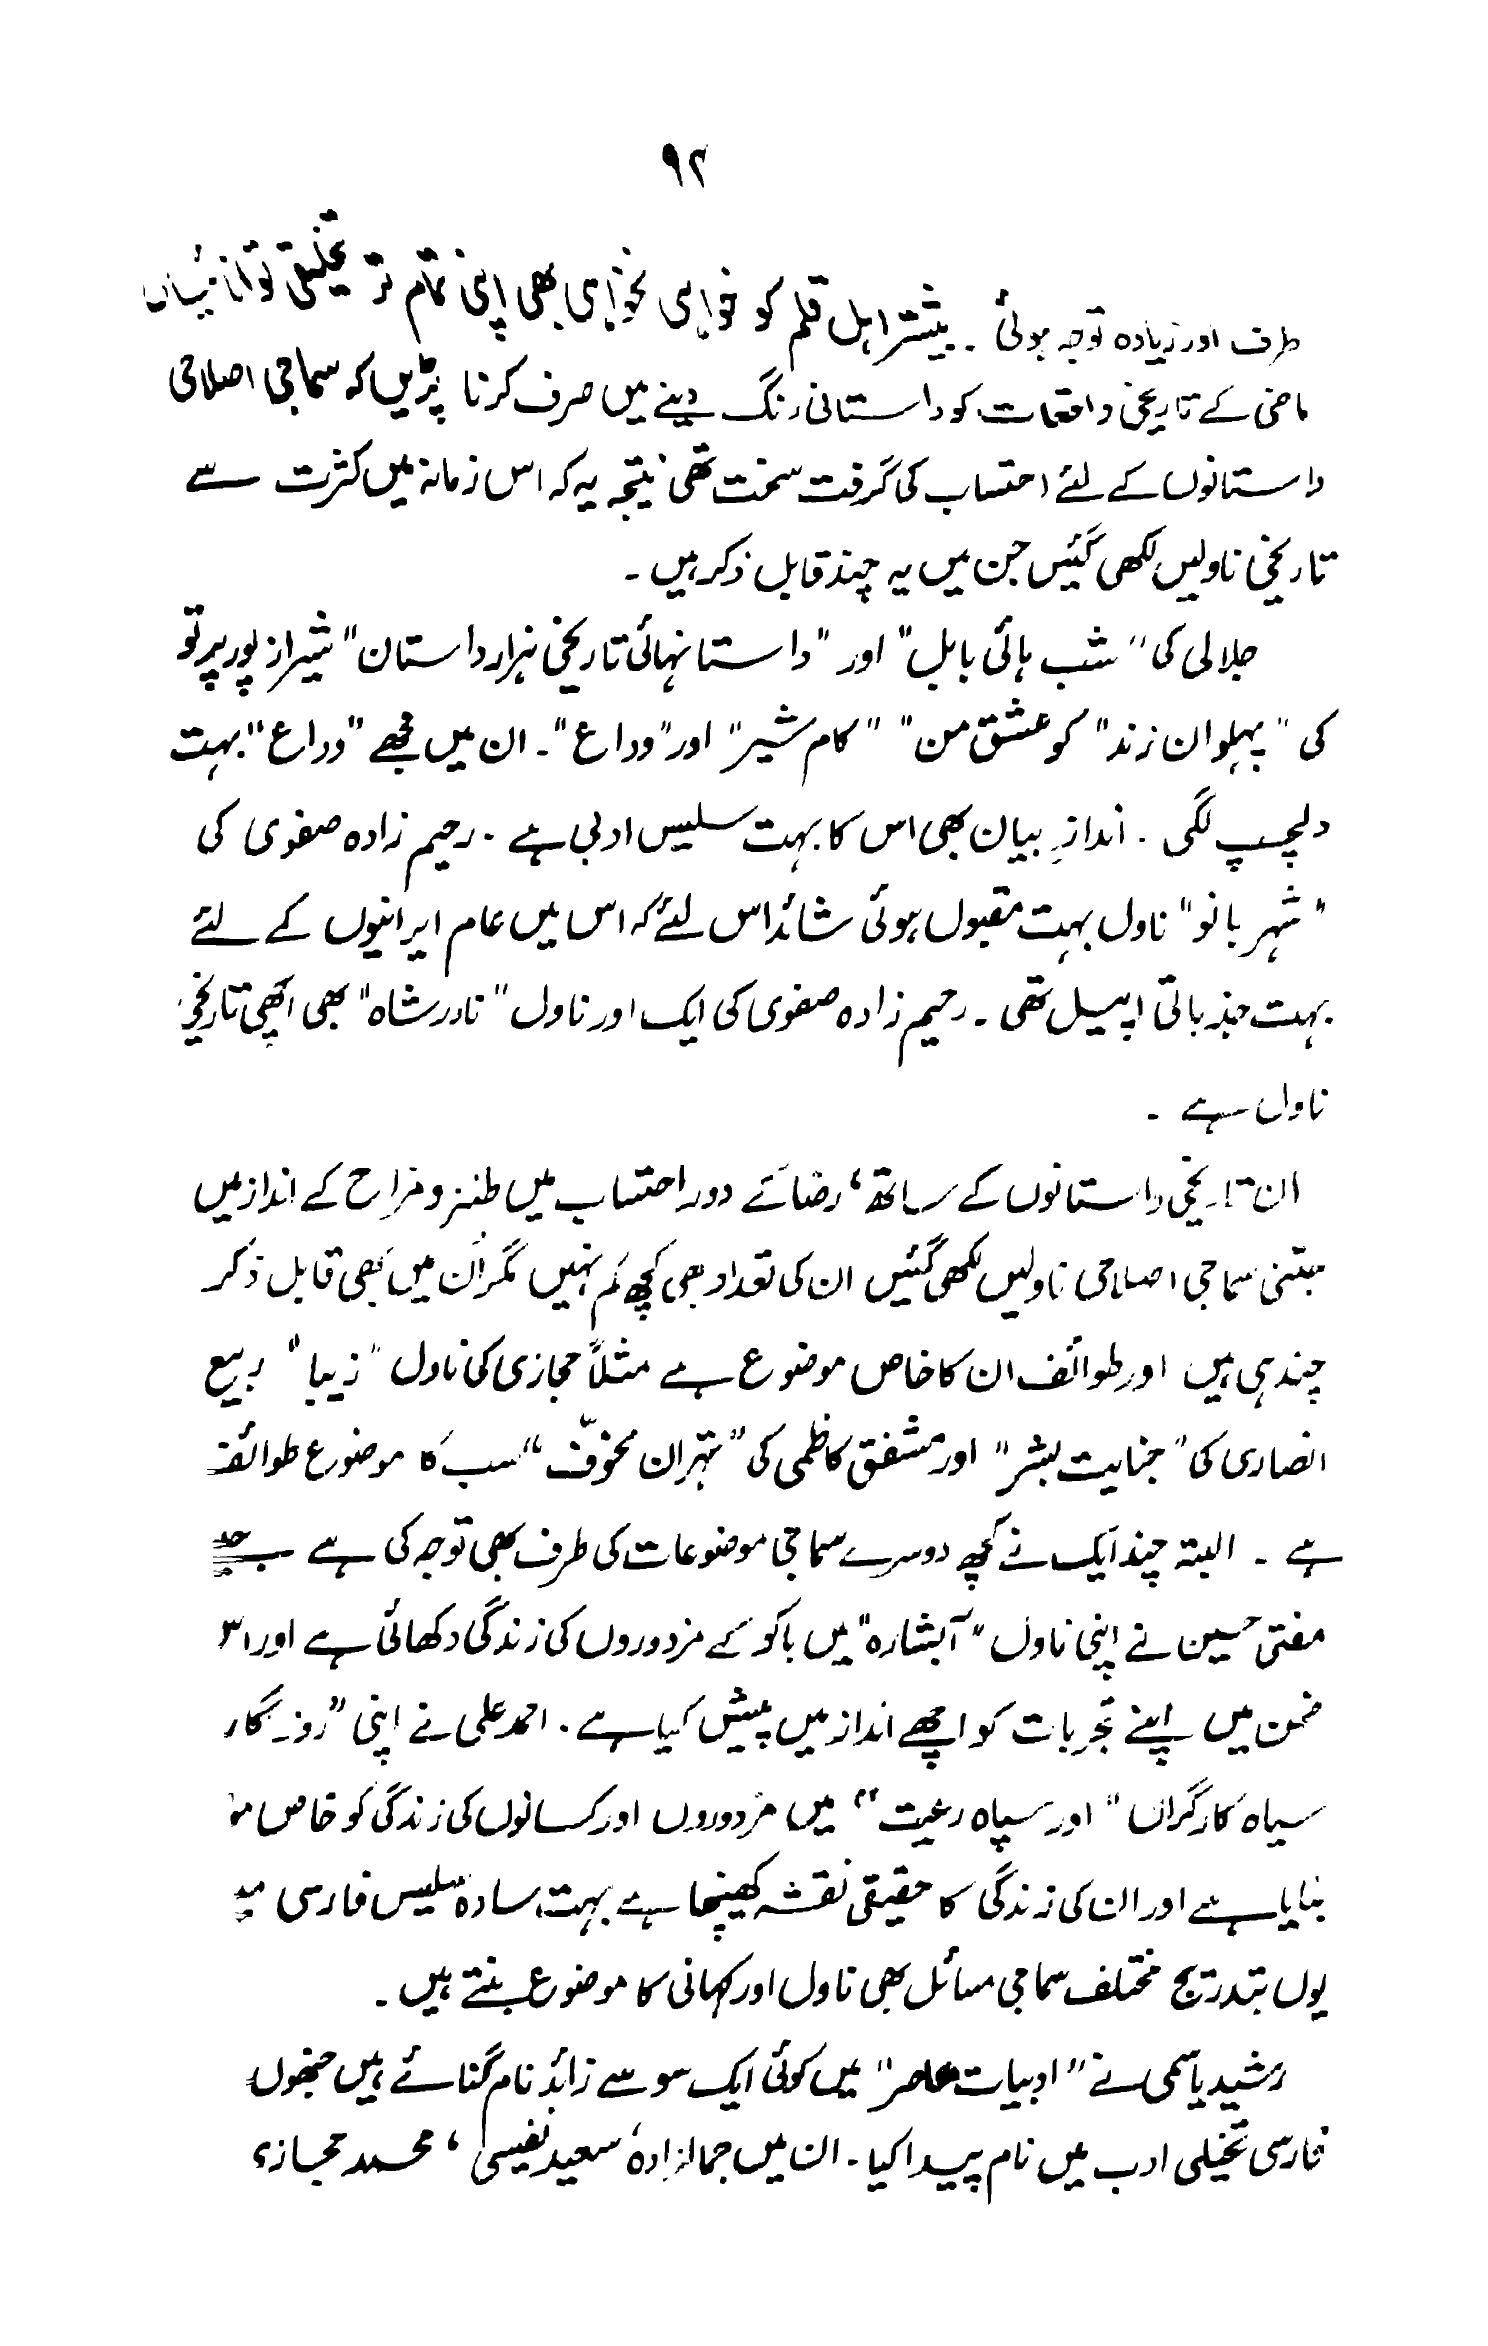 ۹۲
طرف اور زیادہ توجہ ہوئی ۔ بیشتر اہل قلم کو خواہی نخواہی بھی اپنی تمام تر تخلیقی توانائیاں
ماضی کے تاریخی واقعات کو داستانی رنگ دینے میں صرف کرنا پڑیں کہ سماجی اصلاحی
داستانوں کے لئے احتساب کی گرفت سخت تھی نتیجہ یہ کہ اس زمانہ میں کثرت سے
تاریخی ناولیں لکھی گئیں جن میں یہ چند قابل ذکر ہیں ۔
جلالی کی "شب ہائی بابل" اور "داستانہائی تاریخی ہزار داستان" شیراز پور پرتو
کی "پہلوان زند" کو عشق من" "کام شیر" اور "وداع"۔ ان میں مجھے "وداع" بہت
دلچسپ لگی ۔ اندازِ بیان بھی اس کا بہت سلیس ادبی ہے ۔ رحیم زادہ صفوی کی
"شہر بانو" ناول بہت مقبول ہوئی شائد اس لئے کہ اس میں عام ایرانیوں کے لئے
بہت جذباتی اپیل تھی ۔ رحیم زادہ صفوی کی ایک اور ناول "نادر شاہ" بھی اچھی تاریخی
ناول ہے ۔
ان تاریخی داستانوں کے ساتھ، رضائے دور احتساب میں طنز و مزاح کے انداز میں
جتنی سماجی اصلاحی ناولیں لکھی گئیں ان کی تعداد بھی کچھ کم نہیں مگر ان میں بھی قابل ذکر
چند ہی ہیں اور طوائف ان کا خاص موضوع ہے مثلاً حجازی کی ناول "زیبا" ربیع
انصاری کی "جنایت بشر" اور مشفق کاظمی کی "تہران مخوّف" سب کا موضوع طوائف
ہے ۔ البتہ چند ایک نے کچھ دوسرے سماجی موضوعات کی طرف بھی توجہ کی ہے جیسے
مفتی حسین نے اپنی ناول "آبشارہ" میں باکو کے مزدوروں کی زندگی دکھائی ہے اور اس
ضمن میں اپنے تجربات کو اچھے انداز میں پیش کیا ہے ۔ احمد علی نے اپنی "روزگار
سیاہ کارگراں" اور سپاہ رعیت" میں مزدوروں اور کسانوں کی زندگی کو خاص
بنایا ہے اور ان کی زندگی کا حقیقی نقشہ کھینچا ہے بہت سادہ سلیس فارسی
یوں بتدریج مختلف سماجی مسائل بھی ناول اور کہانی کا موضوع بنتے ہیں ۔
رشید یاسمی نے "ادبیات معاصر" میں کوئی ایک سو سے زائد نام گنائے ہیں جنھوں
فارسی تخیلی ادب میں نام پیدا کیا ۔ ان میں جمالزادہ، سعید نفیسی، محمد حجازی